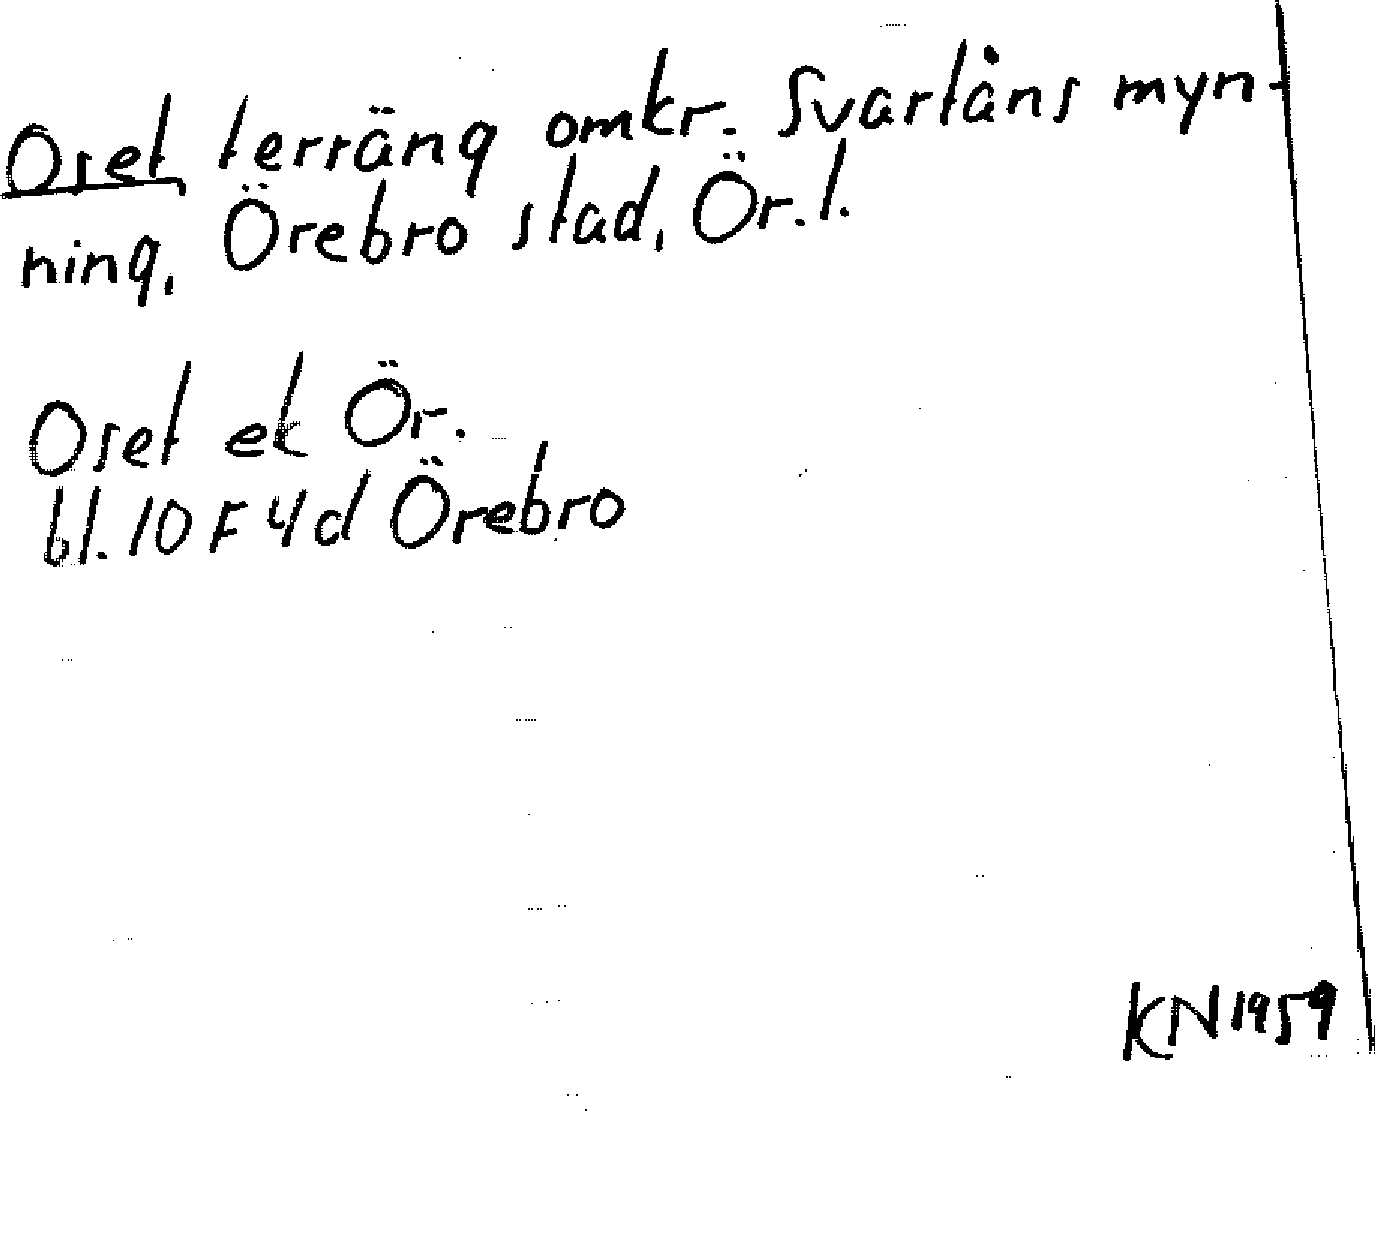 Oset terräng omkr. Svartåns myn-
ning, Örebro stad, Ör. l.
Oset ek Ör.
bl. 10 F 4d Örebro
KN 1959